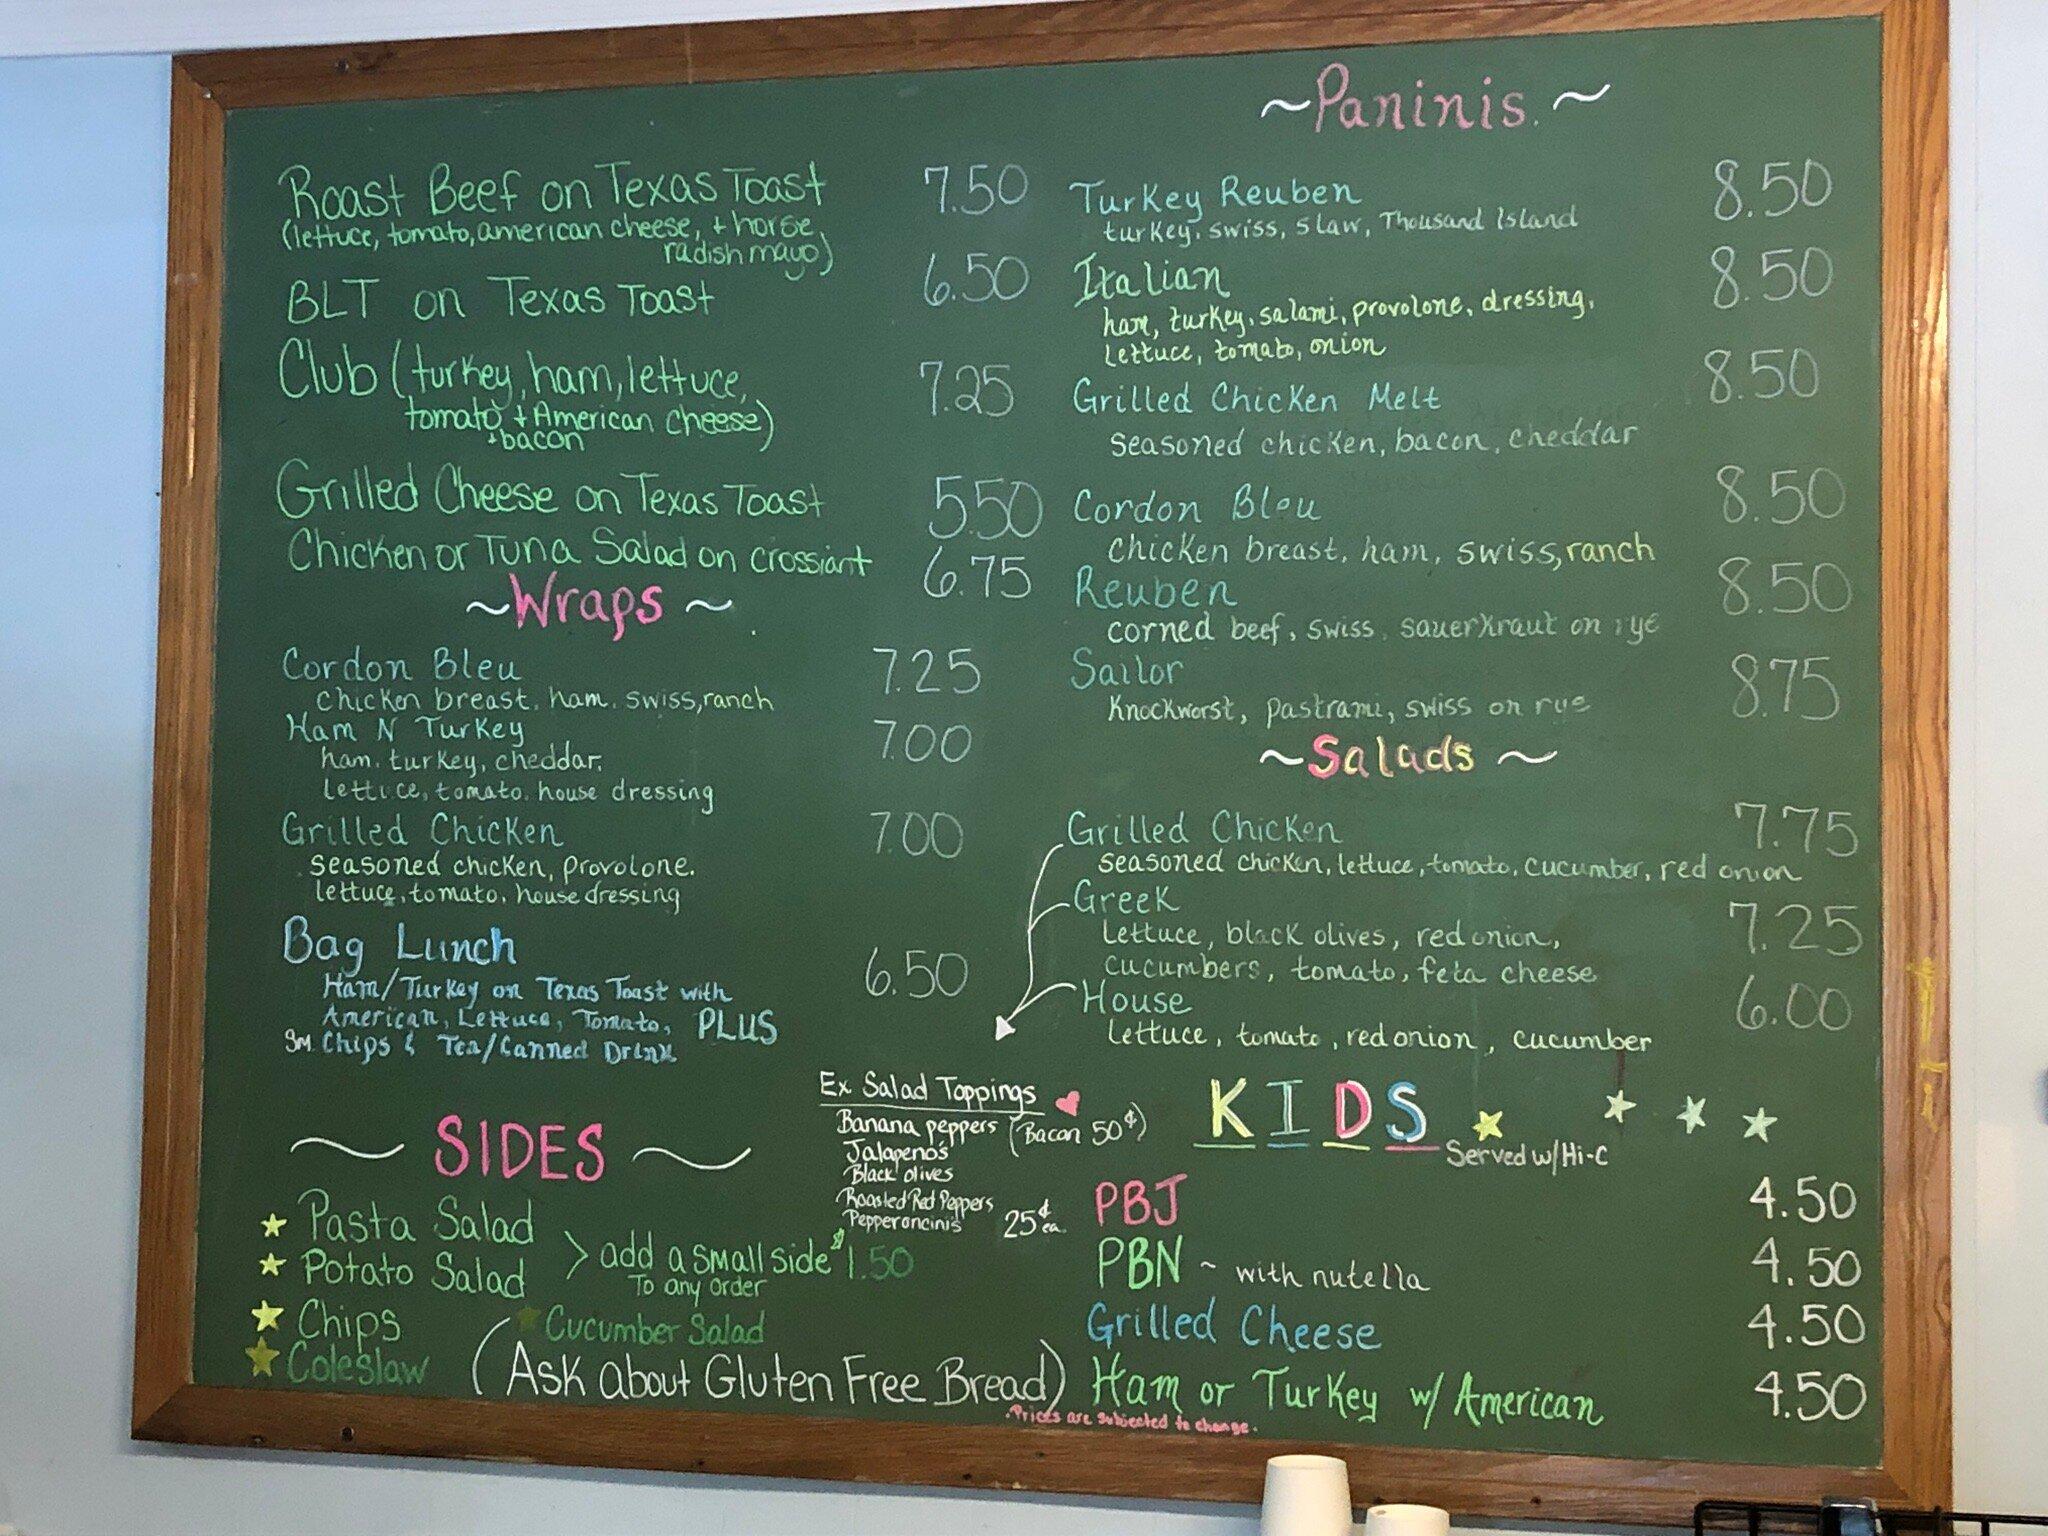 Roast Beef on Texas Toast 7.50
(lettuce, tomato, american cheese, + horse
radish mayo)
BLT on Texas Toast 6.50
Club (turkey, ham, lettuce, 7.25
tomato + American cheese)
+bacon
Grilled Cheese on Texas Toast 5.50
Chicken or Tuna Salad on crossiant 6.75
~Wraps~
Cordon Bleu 7.25
chicken breast, ham, swiss, ranch
Ham N Turkey 7.00
ham, turkey, cheddar,
lettuce, tomato, house dressing
Grilled Chicken 7.00
seasoned chicken, provolone,
lettuce, tomato, house dressing
Bag Lunch 6.50
Ham/Turkey on Texas Toast with
American, Lettuce, Tomato, PLUS
Sm. Chips & Tea/Canned Drink
~SIDES~
Pasta Salad
Potato Salad > add a small side $1.50
To any order
Chips
Cucumber Salad
Coleslaw
(Ask about Gluten Free Bread)
.Prices are subjected to change.
Ex Salad Toppings
Banana peppers (Bacon 50¢)
Jalapeno's
Black olives
Roasted Red Peppers
Pepperoncinis 25¢ ea.
~Paninis.~
Turkey Reuben 8.50
turkey, swiss, slaw, Thousand Island
Italian 8.50
ham, turkey, salami, provolone, dressing,
lettuce, tomato, onion
Grilled Chicken Melt 8.50
seasoned chicken, bacon, cheddar
Cordon Bleu 8.50
chicken breast, ham, swiss, ranch
Reuben 8.50
corned beef, swiss, sauerkraut on rye
Sailor 8.75
Knockworst, pastrami, swiss on rye
~Salads~
Grilled Chicken 7.75
seasoned chicken, lettuce, tomato, cucumber, red onion
Greek 7.25
lettuce, black olives, red onion,
cucumbers, tomato, feta cheese
House 6.00
lettuce, tomato, red onion, cucumber
KIDS
Served w/Hi-C
PBJ 4.50
PBN ~ with nutella 4.50
Grilled Cheese 4.50
Ham or Turkey w/ American 4.50